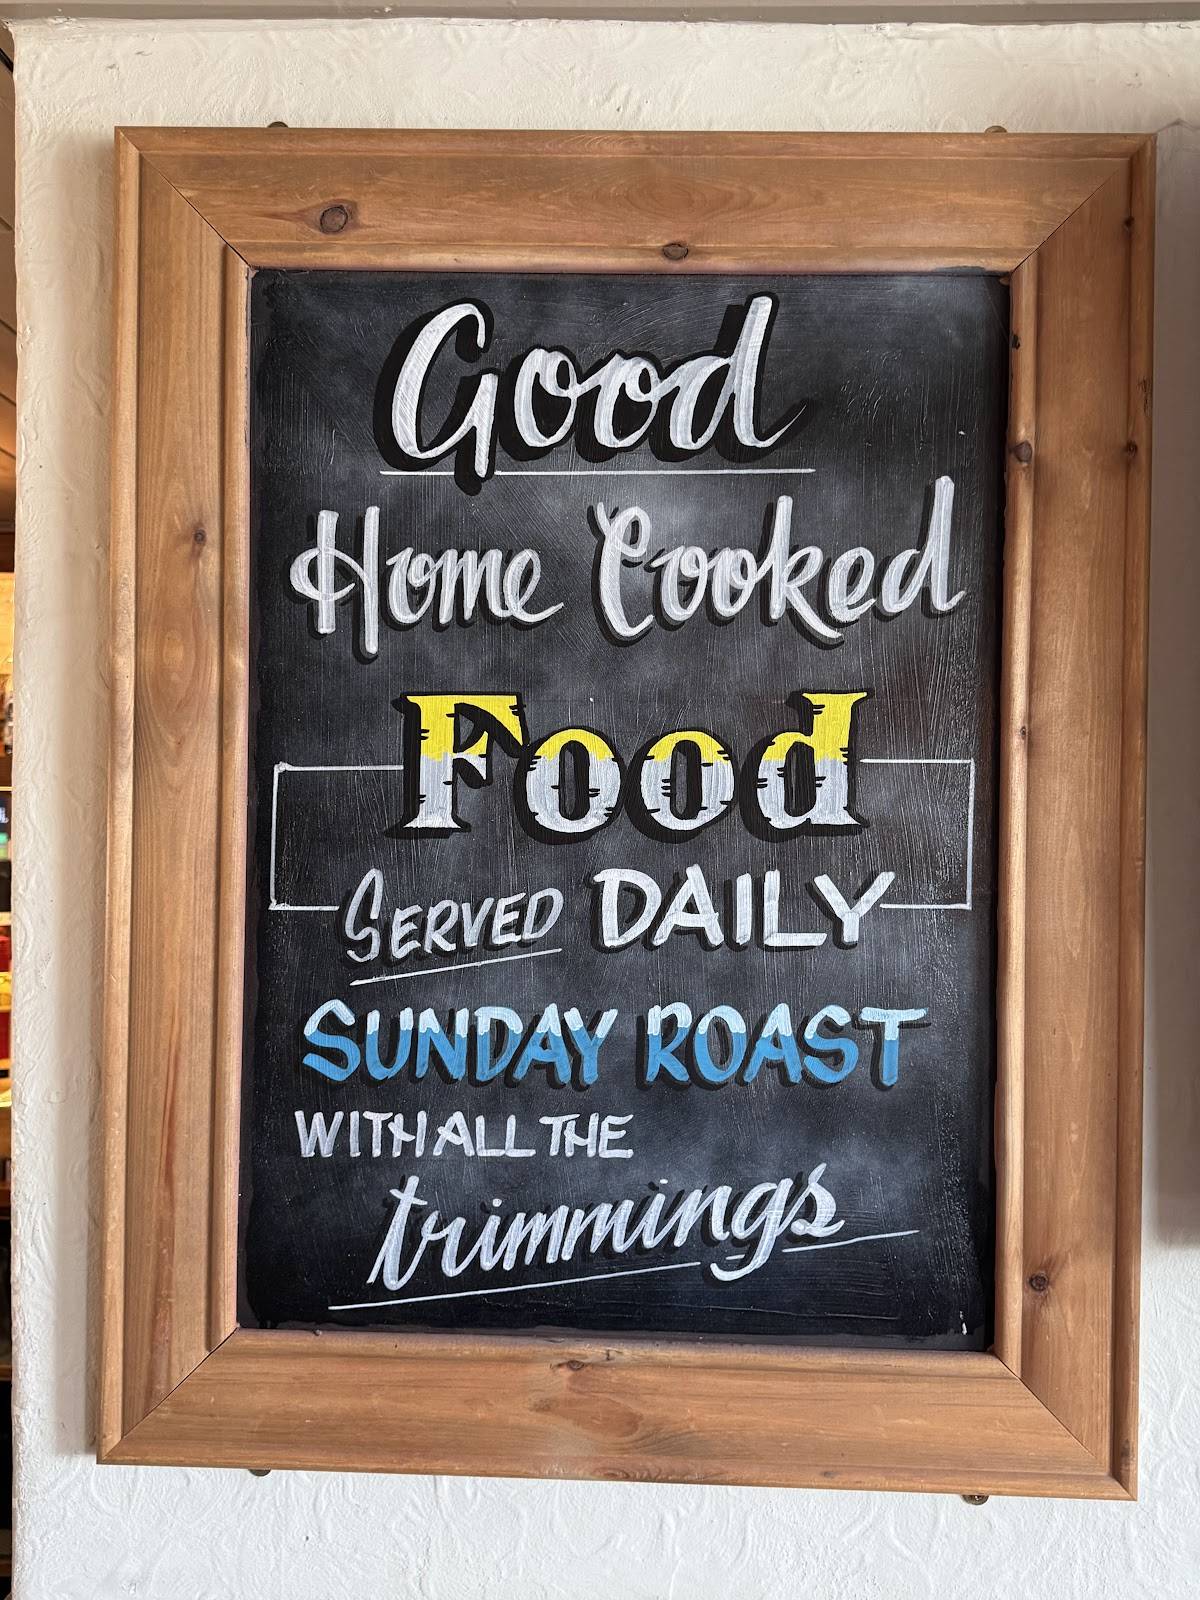 Good
Home Cooked
Food
SERVED DAILY
SUNDAY ROAST
WITH ALL THE
trimmings